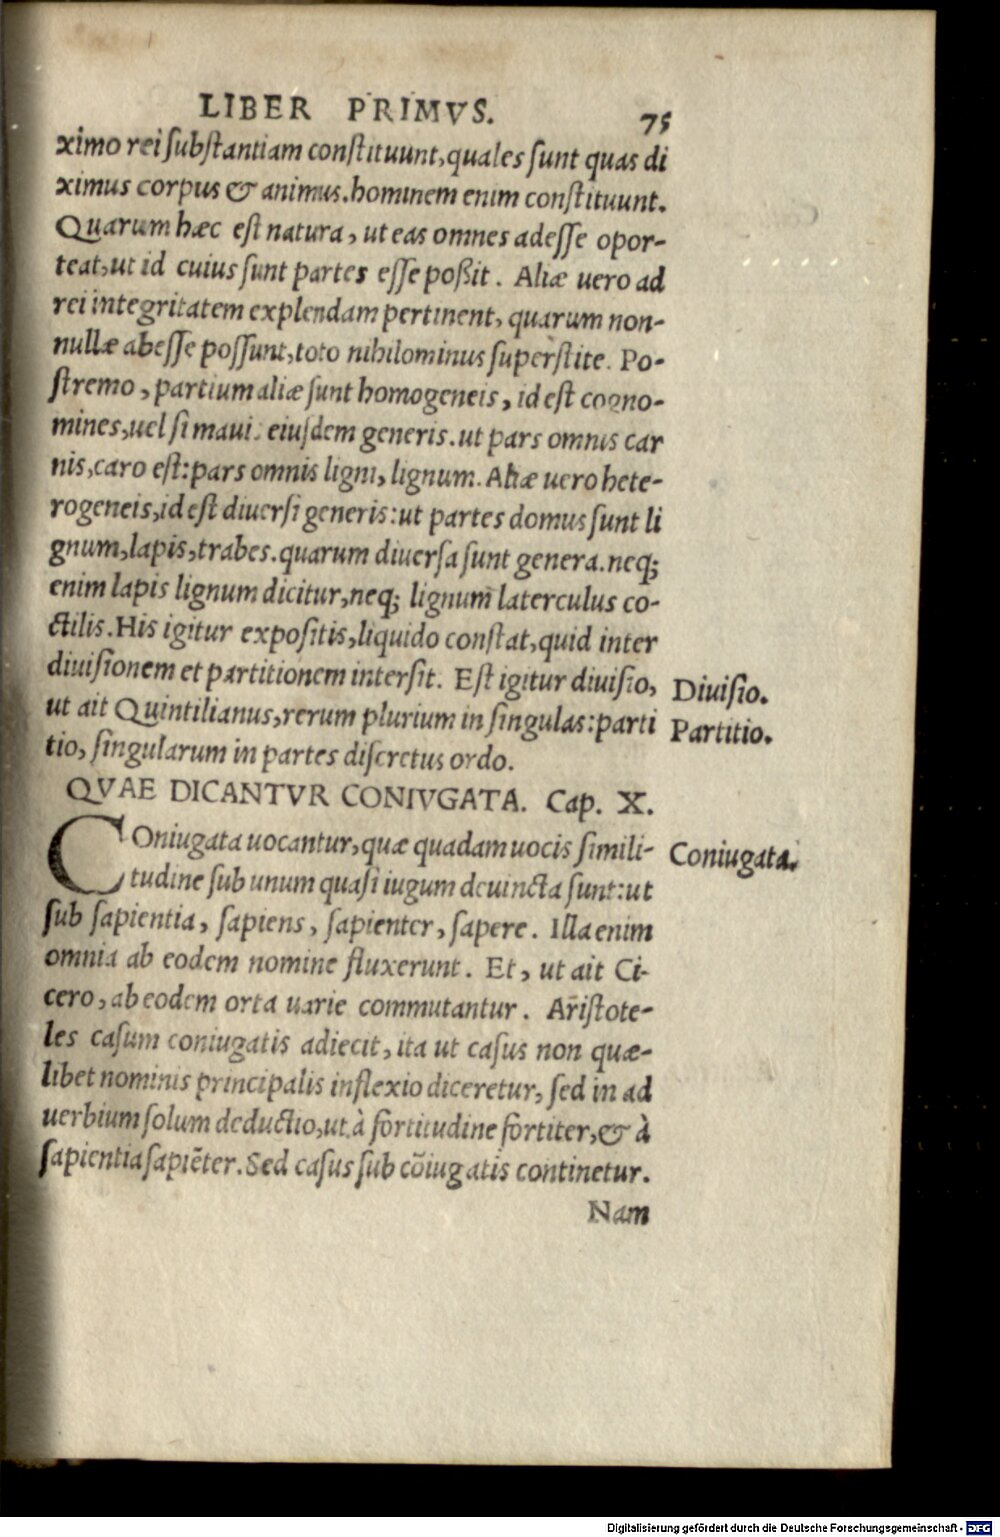 LIBER PRIMVS. 75
ximo rei substantiam constituunt, quales sunt quas di
ximus corpus & animus. hominem enim constituunt.
Quarum hæc est natura, ut eas omnes adesse opor-
teat, ut id cuius sunt partes esse poßit. Aliæ uero ad
rei integritatem explendam pertinent, quarum non-
nullæ abesse possunt, toto nihilominus superstite. Po-
stremo, partium aliæ sunt homogeneis, id est cogno-
mines, uel si maui. eiusdem generis. ut pars omnis car
nis, caro est: pars omnis ligni, lignum. Aliæ uero hete-
rogeneis, id est diuersi generis: ut partes domus sunt li
gnum, lapis, trabes. quarum diuersa sunt genera. neq;
enim lapis lignum dicitur, neq; lignum laterculus co-
ctilis. His igitur expositis, liquido constat, quid inter
diuisionem et partitionem intersit. Est igitur diuisio, Diuisio.
ut ait Quintilianus, rerum plurium in singulas: parti Partitio.
tio, singularum in partes discretus ordo.
QVAE DICANTVR CONIVGATA. Cap. X.
COniugata uocantur, quæ quadam uocis simili- Coniugata.
tudine sub unum quasi iugum deuincta sunt: ut
sub sapientia, sapiens, sapienter, sapere. Illa enim
omnia ab eodem nomine fluxerunt. Et, ut ait Ci-
cero, ab eodem orta uarie commutantur. Aristote-
les casum coniugatis adiecit, ita ut casus non quæ-
libet nominis principalis inflexio diceretur, sed in ad
uerbium solum deductio, ut à fortitudine fortiter, & à
sapientia sapiẽter. Sed casus sub cõiugatis continetur.
Nam
Digitalisierung gefördert durch die Deutsche Forschungsgemeinschaft - DFG